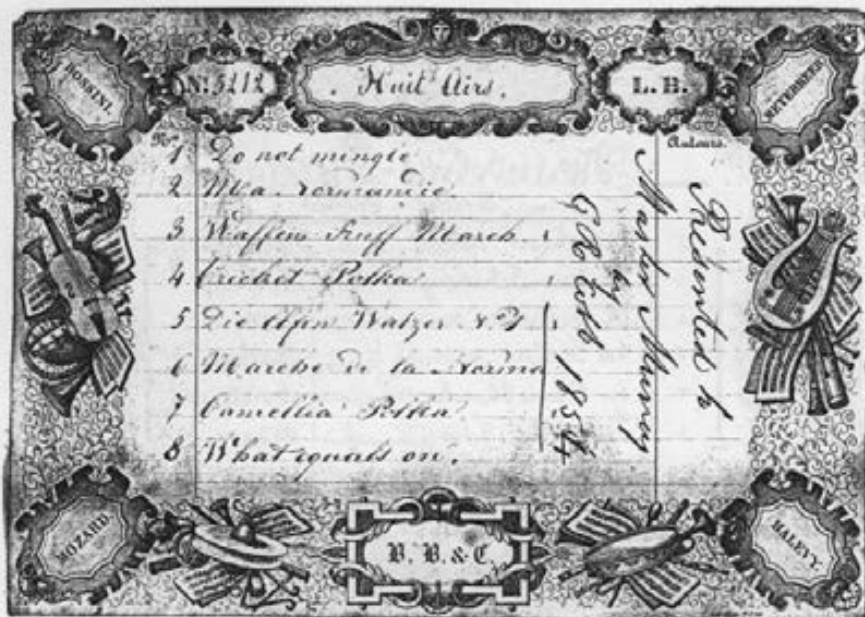 ROSSINI.
N: 5212
Huit Airs.
L. H.
MEYERBEER
Nos
Auteurs.
1 Do not mingle
2 Ma Normandie.
3 Waffen Ruff March
4 Cricket Polka
5 Die Elfin Walzer No 1
6 Marche de la Norma
7 Camellia Polka
8 What equals on.
Presented to
Master Murray
by
1854
MOZARD.
B. B. & C.
HALEVY.